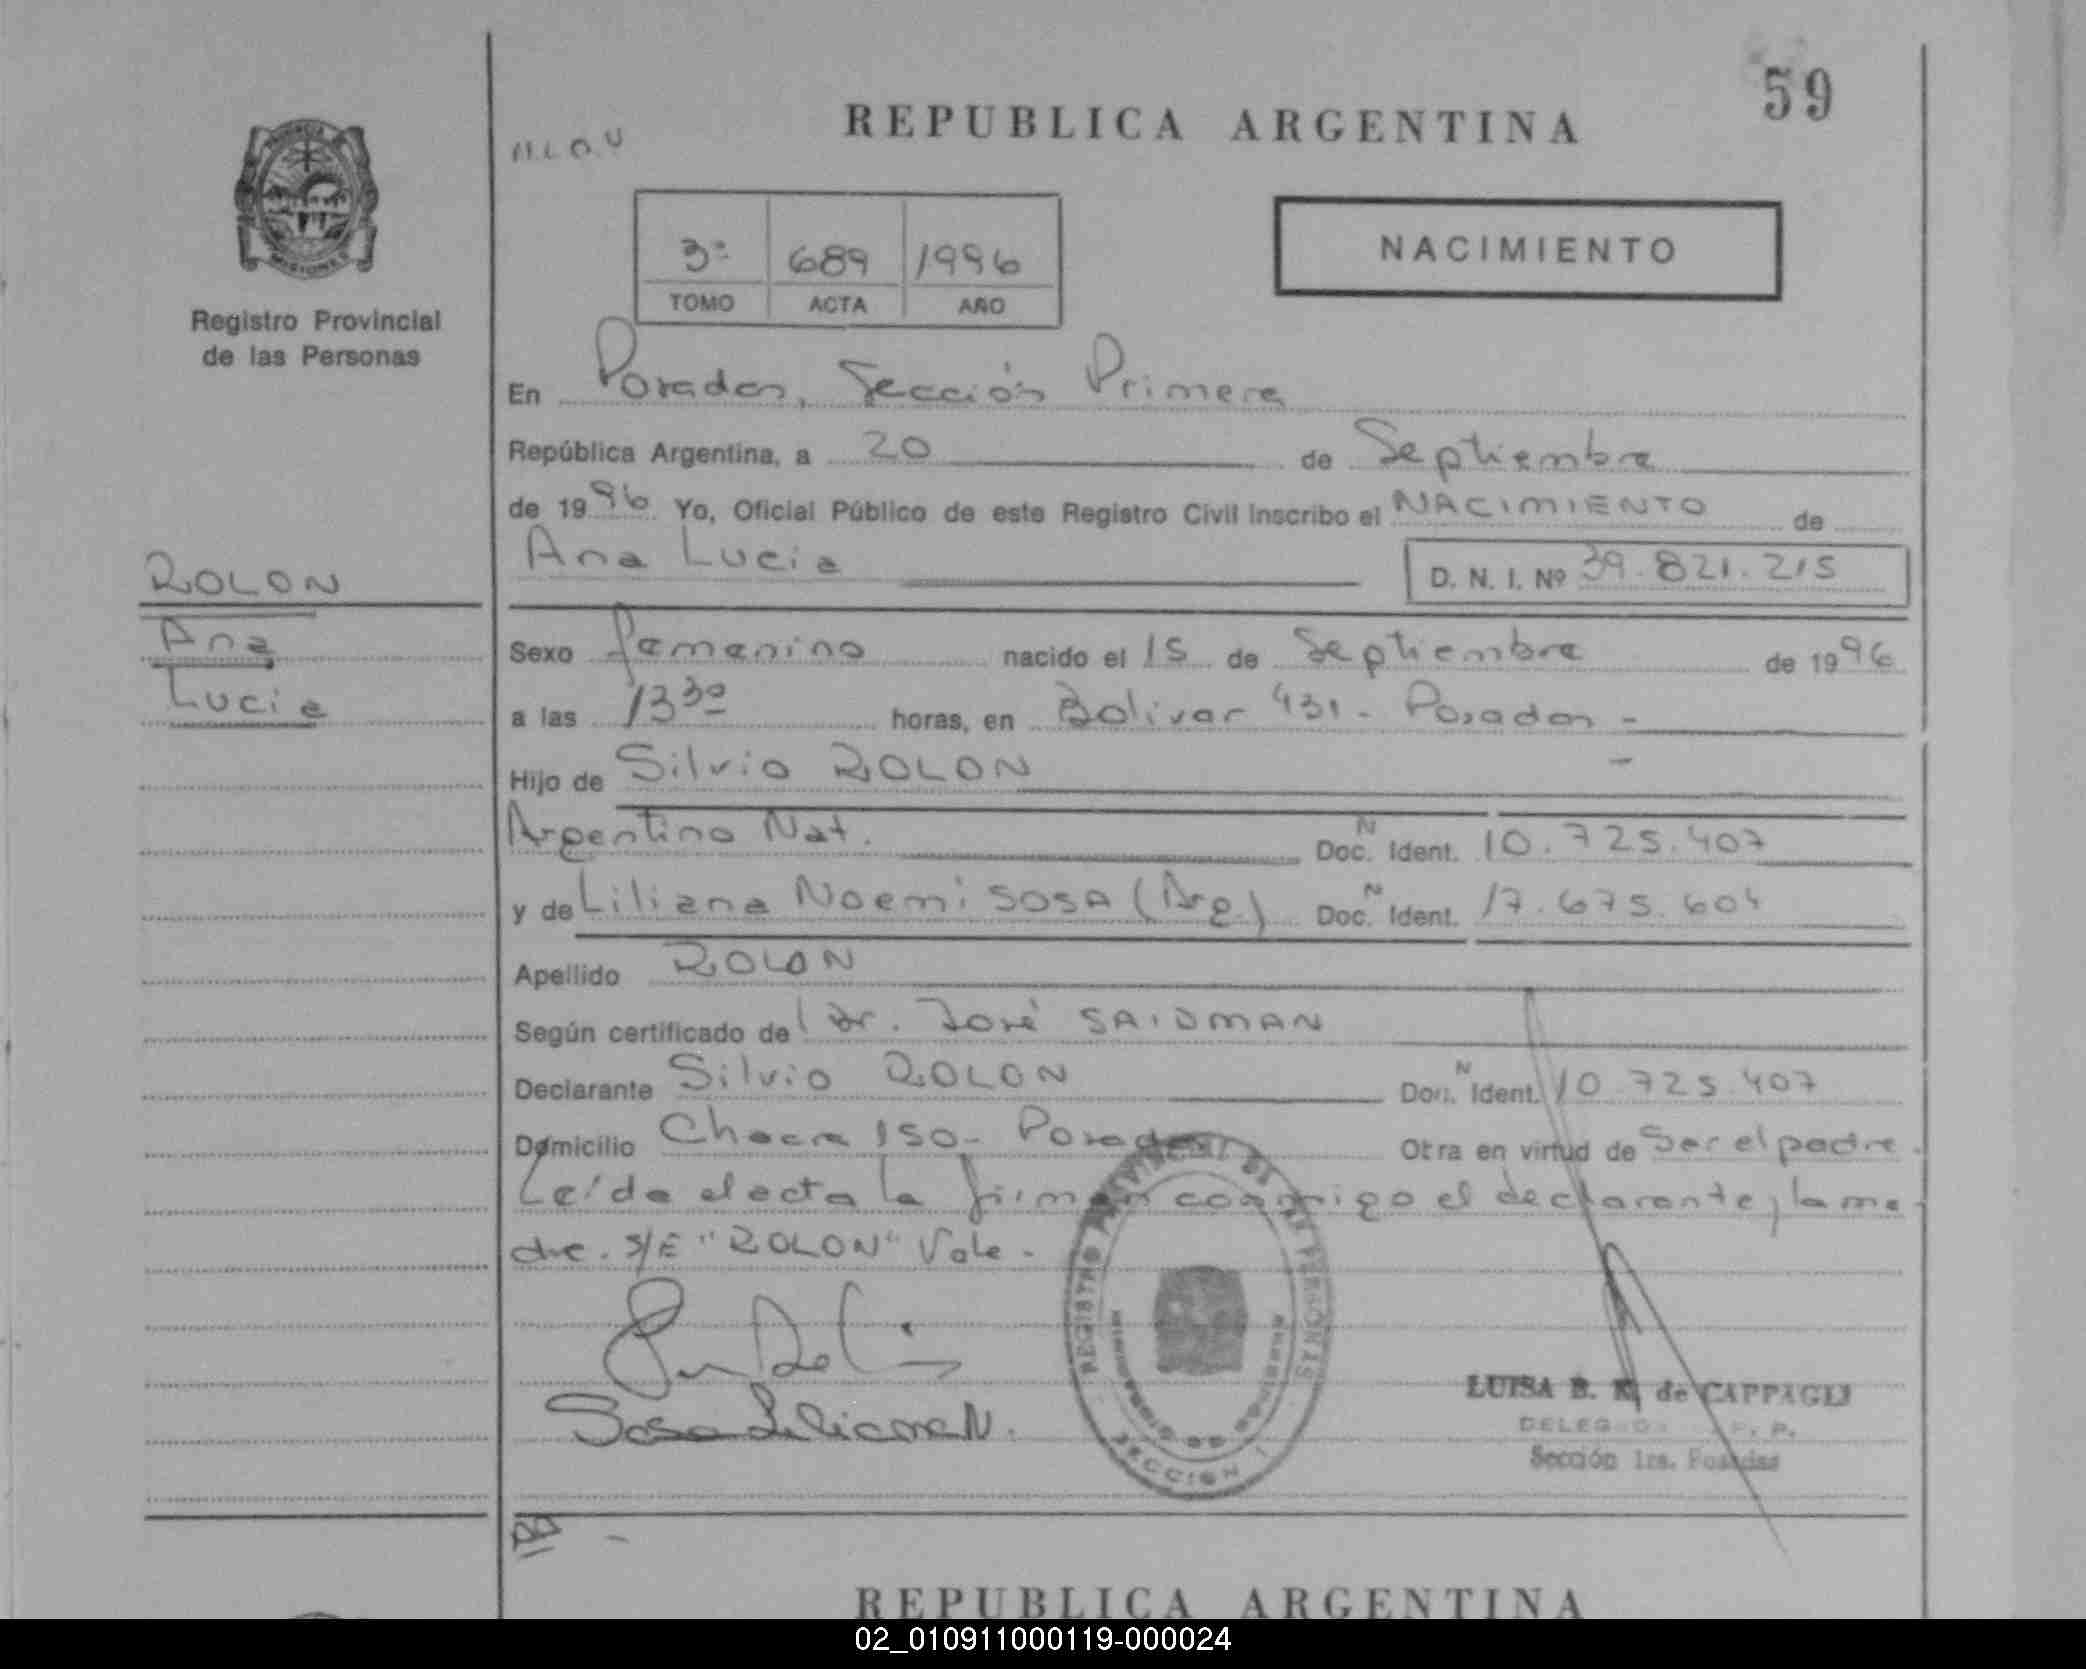 59
REPUBLICA ARGENTINA
PROVINCIA
MISIONES
Registro Provincial
de las Personas
3º 689 1996
TOMO ACTA AÑO
NACIMIENTO
En Posadas, Sección Primera
República Argentina, a 20 de Septiembre
de 1996 Yo, Oficial Público de este Registro Civil Inscribo el NACIMIENTO de
Ana Lucia D. N. I. Nº 39.821.215
ROLON
Ana
Lucia
Sexo femenino nacido el 15 de Septiembre de 1996
a las 13 30 horas, en Bolivar 431 - Posadas -
Hijo de Silvio ROLON
Argentino Nat. Doc. N Ident. 10.725.407
y de Liliana Noemi SOSA (Arg.) Doc. N Ident. 17.675.604
Apellido ROLON
Según certificado del Dr. José SAIDMAN
Declarante Silvio ROLON Doc. N Ident. 10.725.407
Domicilio Chacra 150 - Posadas Otra en virtud de Ser el padre.
Leída el acta la firman conmigo el declarante, la ma
dre. S/E "ROLON" Vale -
Sosa Liliana N.
REGISTRO PROVINCIAL DE LAS PERSONAS
SECCION 1
LUISA B. K. de CAPPAGLI
Sección 1ra. Posadas
REPUBLICA ARGENTINA
02_010911000119-000024